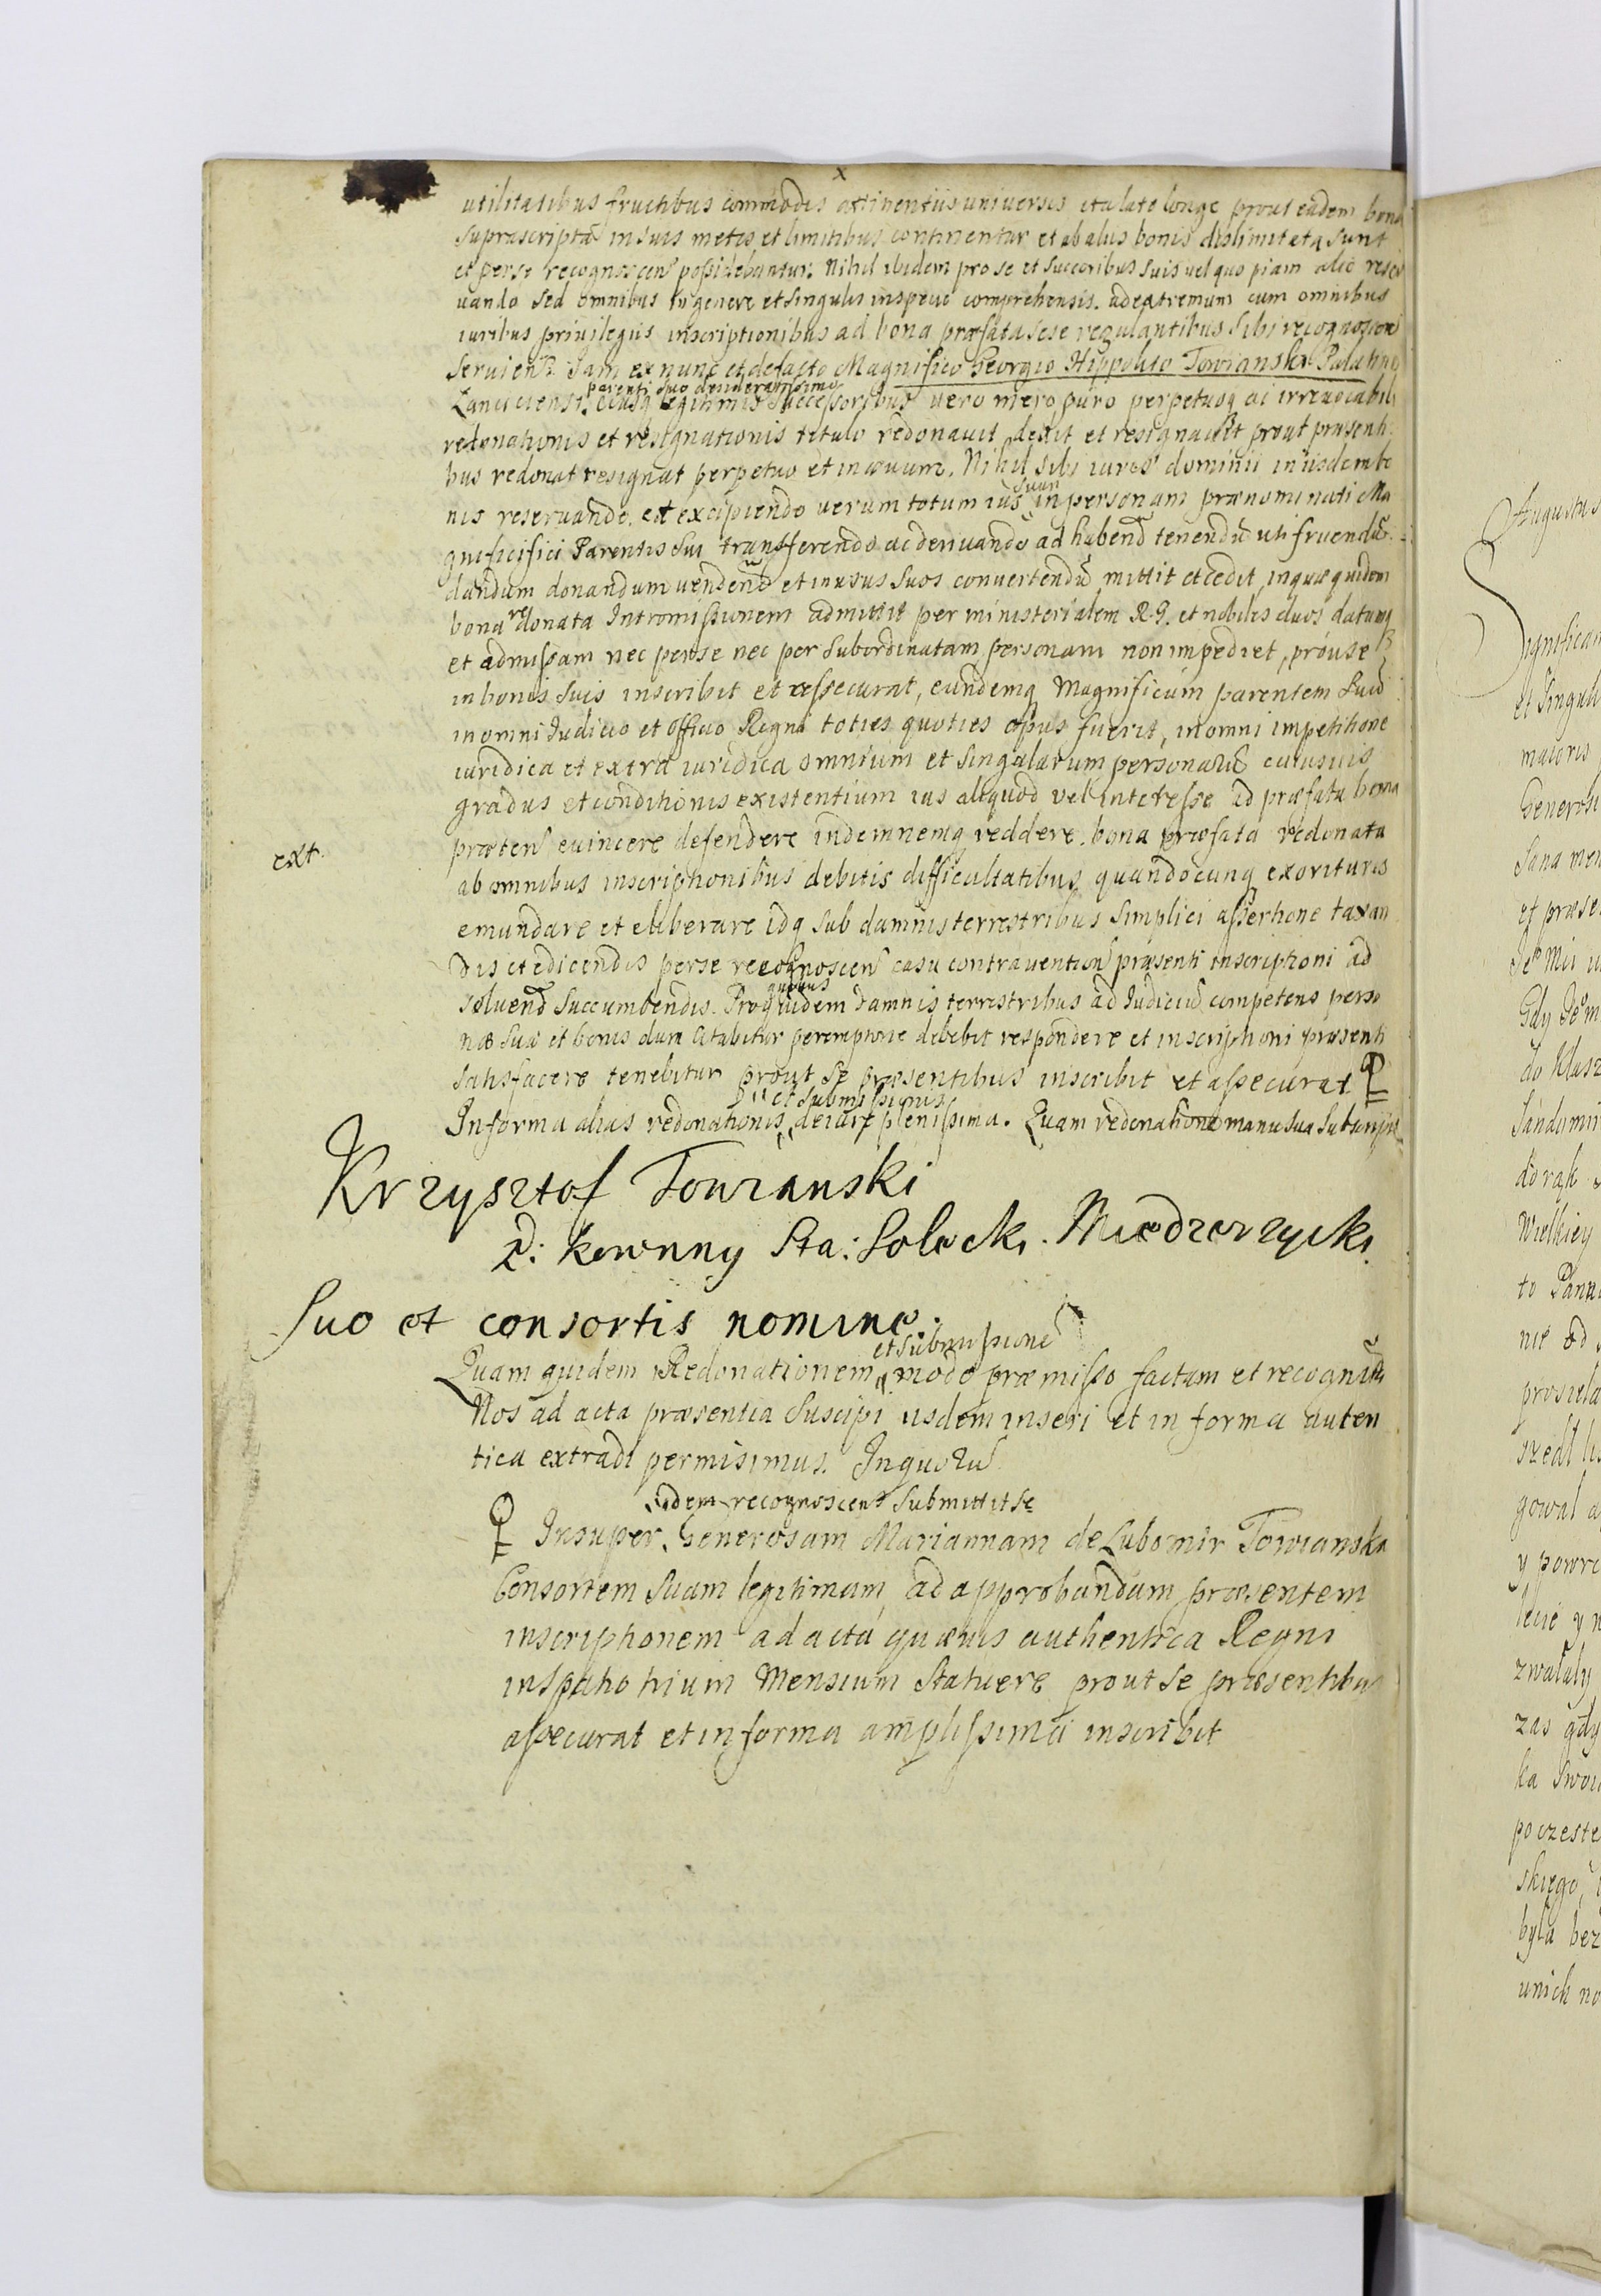 utilitatibus fructibus commodis attinentiis universis ita late longe prout eadem bona
suprascripta in suis metis et limitibus continentur et ab aliis bonis dislimitata sunt
et per se recognoscen possidebantur. Nihil ibidem pro se et succoribus suis vel quo piam alio reser
uando sed omnibus in genere et singulis in specie comprehensis. ad extremum cum omnibus
iuribus priuilegiis inscriptionibus ad bona præfata sese regulantibus sibi recognoscen
seruien Jam ex nunc et de facto Magnifico Georgio Hippolito Towianski Palatino
parenti suo desideratissimo
Lanciciensi. eiusq legitimis successoribus vero mero puro perpetuoq ac irreuocabili
redonationis et resignationis titulo redonauit dedit et resignauit prout præsenti
bus redonat resignat perpetuo et in æuum. Nihil sibi iuris dominii in iisdem bo
suum
nis reseruando et excipiendo verum totum ius in personam prænominati Ma
gnificifici Parentis sui transferendo ac deriuando ad habend tenendũ uti fruendũ
dandum donandum vendend et in usus suos conuertendũ mittit et cedit, in quæ quidem
bona redonata Intromissionem admittit per ministerialem R. G. et nobiles duos datamq
et admissam nec per se nec per subordinatam personam non impediet, prout se
in bonis suis inscribit et assecurat, eundemq Magnificum parentem suũ
in omni Judicio et Officio Regni toties quoties opus fuerit, in omni impetitione
iuridica et extra iuridica omnium et singularum personarũ cuiusuis
gradus et conditionis existentium ius aliquod vel interesse ad præfata bona
præten euincere defendere indemnemq reddere. bona præfata redonata
ext.
ab omnibus inscriptionibus debitis difficultatibus quandocunq exorituris
emundare et eliberare idq sub damnis terrestribus simplici assertione taxan
dis et edicendis per se recognoscen casu contrauention præsenti inscriptioni ad
quibus
soluend succumbendis. Pro quidem damnis terrestribus ad Judiciũ competens perso
næ suæ et bonis dum citabitur peremptorie debebit respondere et inscriptioni præsenti
satisfacere tenebitur prout se præsentibus inscribit et assecurat
et submissionis
In forma alias redonationis de iure plenissima. Quam redonatione manu sua subscripsit
Krzysztof Towianski
P: Kownny Sta: Solecki. Miedzerzycki
Suo et consortis nomine.
et submissione
Quam quidem Redonationem modo præmisso factam et recognitã
Nos ad acta præsentia suscipi iisdem inseri et in forma auten
tica extradi permisimus. In quorũ
idem recognoscens submittit se
Insuper Generosam Mariannam de Lubomir Towianska
Consortem suam legitimam ad approbandam præsentem
inscriptionem ad acta quæuis authentica Regni
in spatio trium Mensium statuere prout se præsentibus
assecurat et in forma amplissima inscribit
Augustus
Significam
et singul
maioris
Generosi
sana men
et præse
Gdy
do klasz
Sandomir
Wielkiey
to Panu
nie od
szedl
gowal
y powro
lecie y
zwalaly
zas gdy
ka swoi
poczeste
skiego,
była bez
unich no